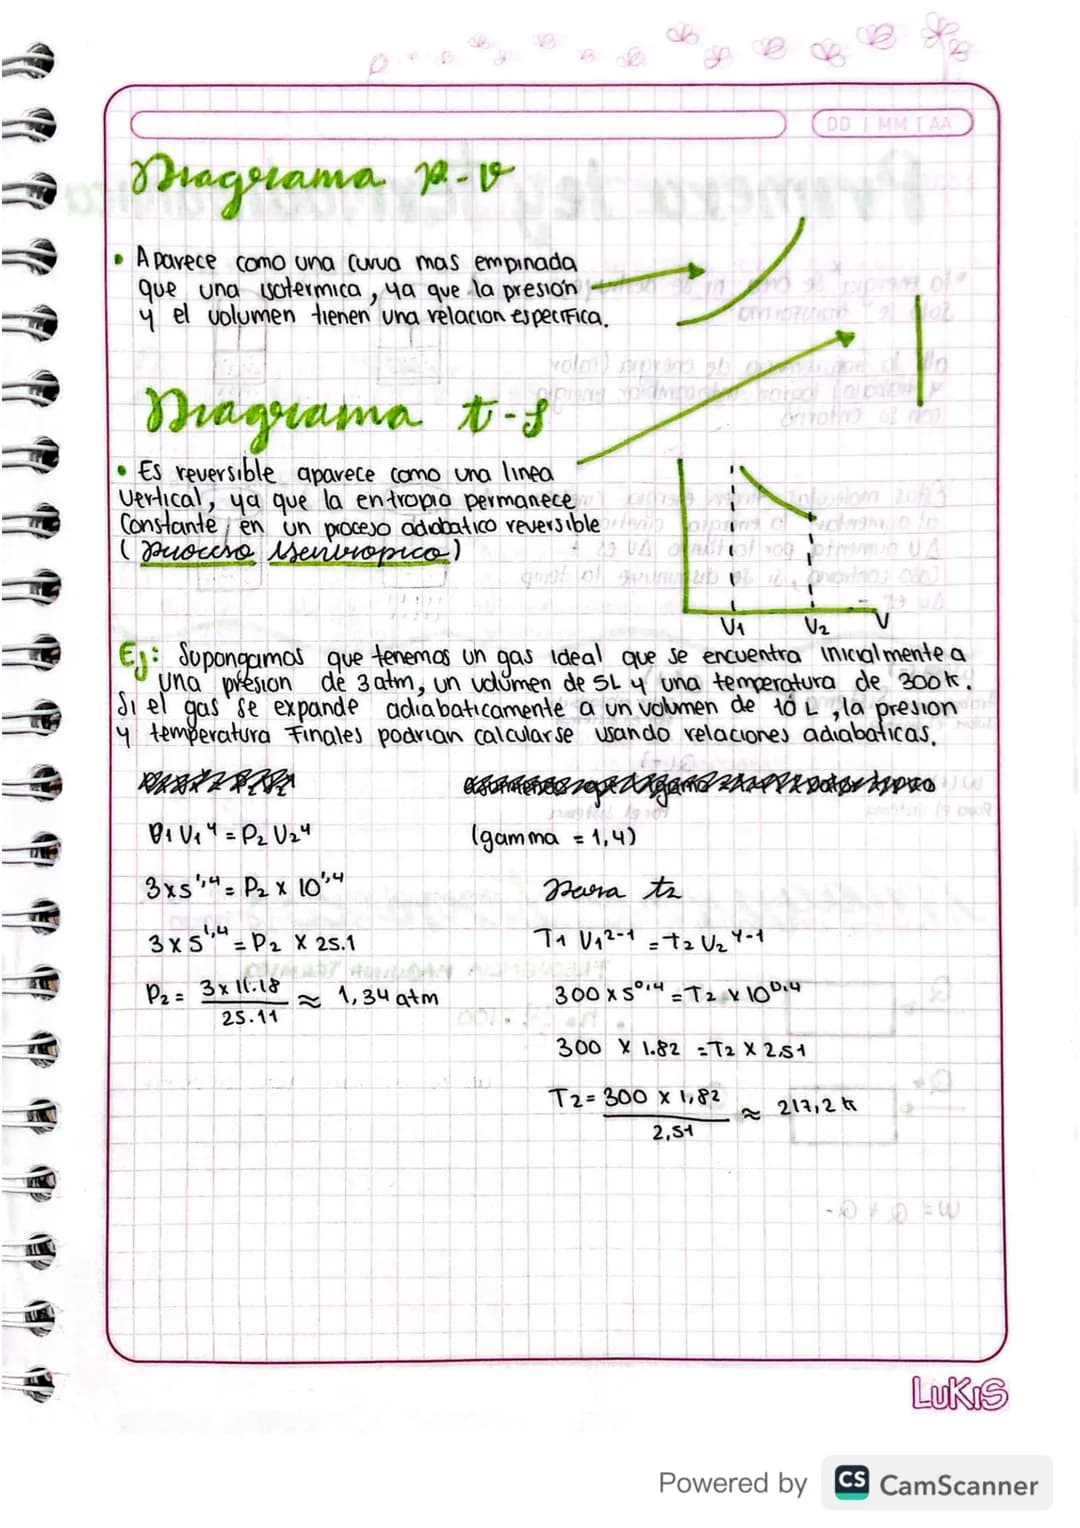 DD MM AA
Diagrama p-v
• Aparece como una curva mas empinada
que una isotermica, ya que la presion
y el volumen tienen una relacion especifica.
Diagrama t-s
• Es reversible aparece como una linea
vertical, ya que la entropia permanece
constante, en un proceso adiabatico reversible
(proceso isentropico)
V1 V2 V
Ej: Supongamos que tenemos un gas ideal que se encuentra inicialmente a
una presion de 3 atm, un volumen de 5L y una temperatura de 300k.
Si el gas se expande adiabaticamente a un volumen de 10 L, la presion
y temperatura finales podrian calcularse usando relaciones adiabaticas.
P1 V1^4 = P2 V2^4
(gamma = 1,4)
3x5^1,4 = P2 x 10^1,4
Para t2
3 x 5^1,4 = P2 x 25.1
T1 V1^2-1 = t2 V2^4-1
P2 = 3 x 11.18 / 25.11 ≈ 1,34 atm
300 x 5^0,4 = T2 x 10^0.4
300 x 1.82 = T2 x 2.51
T2 = 300 x 1,82 / 2,51 ≈ 217,2 k
LUKIS
Powered by CS CamScanner